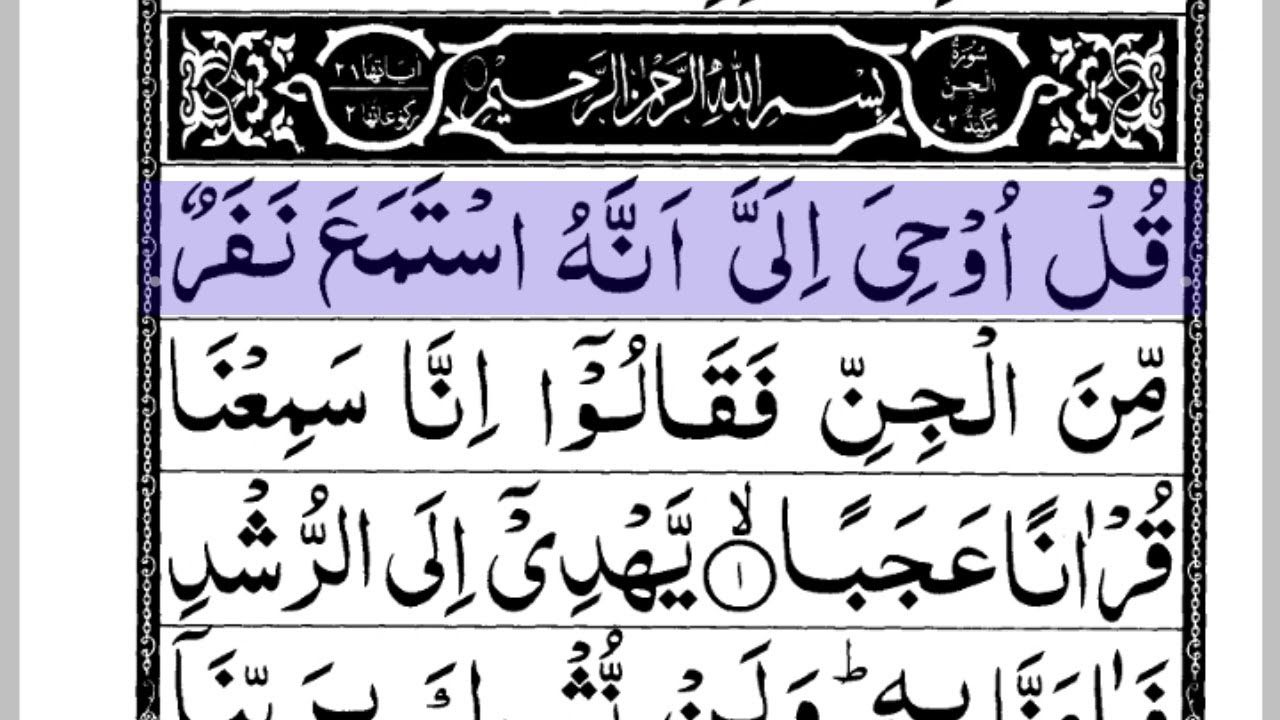 سُوْرَةُ الْجِنِّ مَكِّيَّةٌ
بِسْمِ اللهِ الرَّحْمٰنِ الرَّحِيْمِ
اٰيَاتُهَا ٢٨
رُكُوْعَاتُهَا ٢
قُلْ اُوْحِىَ اِلَىَّ اَنَّهُ اسْتَمَعَ نَفَرٌ
مِّنَ الْجِنِّ فَقَالُوْٓا اِنَّا سَمِعْنَا
قُرْاٰنًا عَجَبًا ۙ‏ ١ يَّهْدِىْٓ اِلَى الرُّشْدِ
فَاٰمَنَّا بِهٖ ؕ وَلَنْ نُّشْرِكَ بِرَبِّنَاۤ